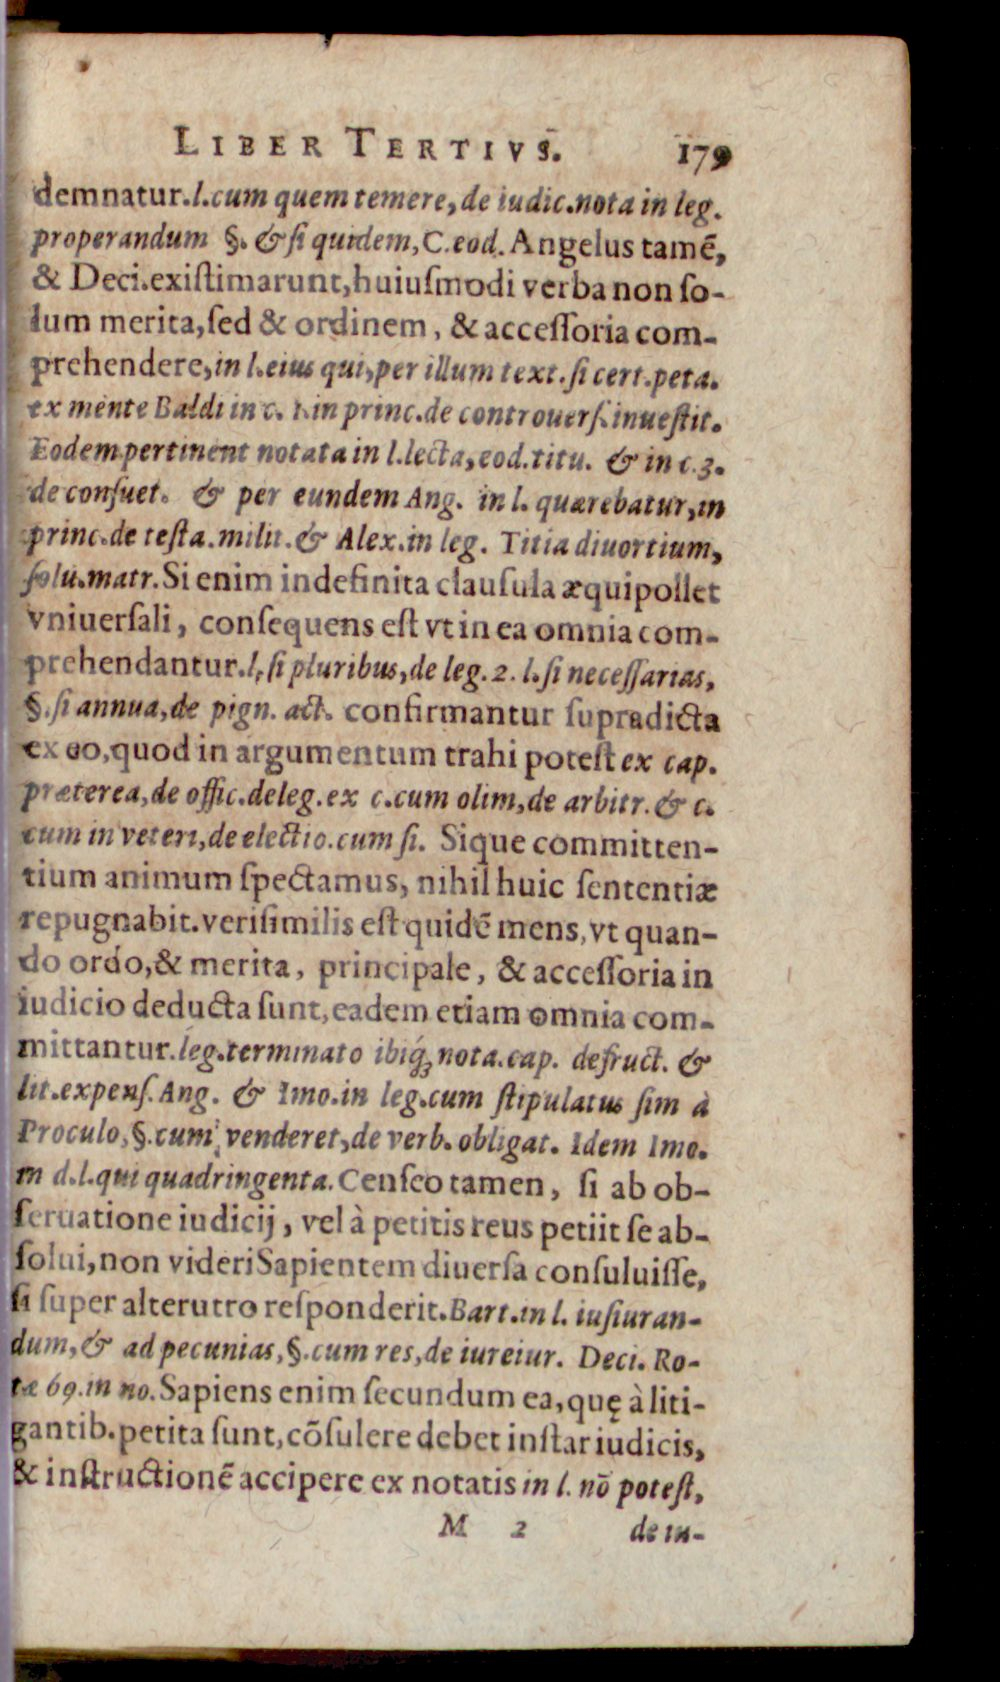 LIBER TERTIVS. 179
demnatur.l.cum quem temere, de iudic.nota in leg.
properandum §. & si quidem, C.eod. Angelus tamē,
& Deci.existimarunt, huiusmodi verba non so-
lum merita, sed & ordinem, & accessoria com-
prehendere, in l.eius qui, per illum text.si cert.peta.
ex mente Baldi in c. 1.in princ.de controuers.inuestit.
Eodem pertinent notata in l.lecta, eod.titu. & in c.3.
de consuet. & per eundem Ang. in l. quærebatur, in
princ.de testa.milit.& Alex.in leg. Titia diuortium,
solu.matr. Si enim indefinita clausula æquipollet
vniuersali, consequens est vt in ea omnia com-
prehendantur.l. si pluribus, de leg.2. l.si necessarias,
§.si annua, de pign. act. confirmantur supradicta
ex eo, quod in argumentum trahi potest ex cap.
præterea, de offic.deleg.ex c.cum olim, de arbitr.& c.
cum in veteri, de electio.cum si. Sique committen-
tium animum spectamus, nihil huic sententiæ
repugnabit. verisimilis est quidē mens, vt quan-
do ordo, & merita, principale, & accessoria in
iudicio deducta sunt, eadem etiam omnia com-
mittantur.leg.terminato ibiq́ꝫ nota.cap. de fruct. &
lit.expens.Ang. & Imo.in leg.cum stipulatus sim à
Proculo, §.cum venderet, de verb.obligat. Idem Imo.
in d.l.qui quadringenta. Censeo tamen, si ab ob-
seruatione iudicij, vel à petitis reus petiit se ab-
solui, non videri Sapientem diuersa consuluisse,
si super alterutro responderit.Bart.in l. iusiuran-
dum, & ad pecunias, §.cum res, de iureiur. Deci. Ro-
tæ 69.in no. Sapiens enim secundum ea, quę à liti-
gantib.petita sunt, cōsulere debet instar iudicis,
& instructionē accipere ex notatis in l. nō potest,
M 2 de iu-